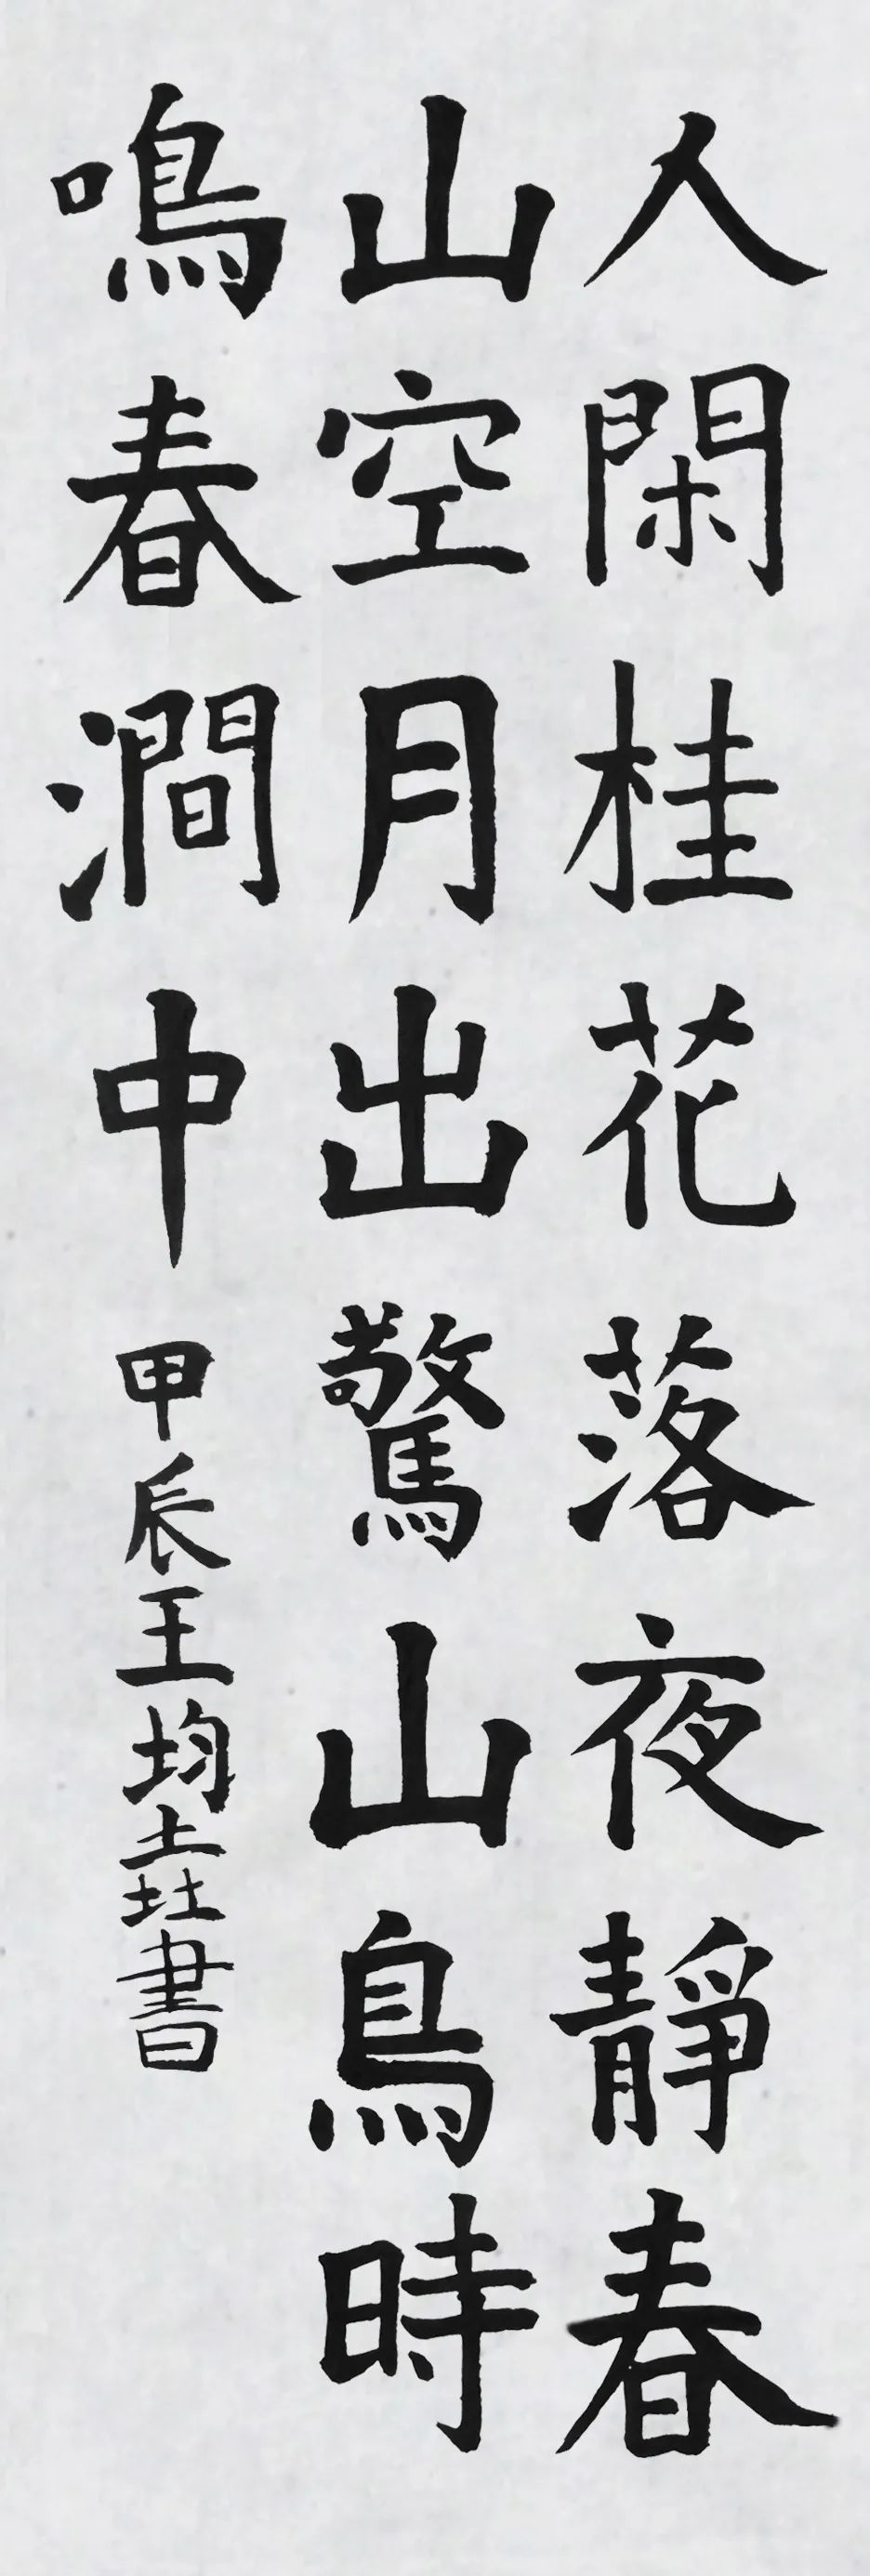 人閑桂花落夜靜春
山空月出驚山鳥時
鳴春澗中 甲辰王均垚書